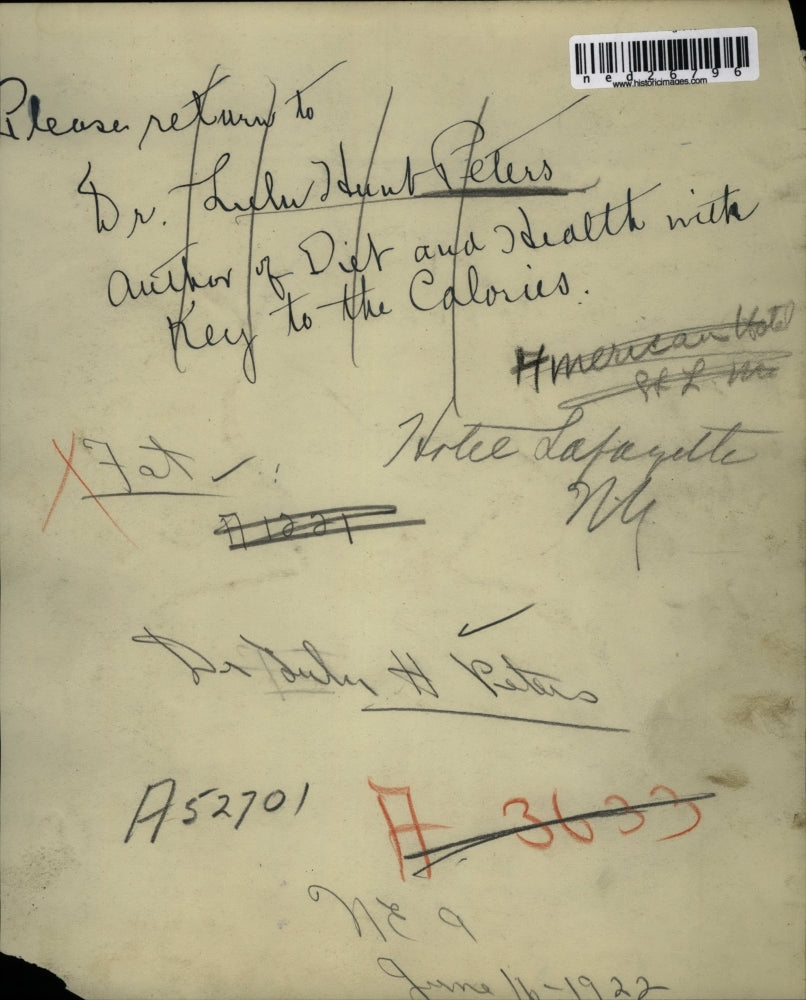 ned26796
www.historicimages.com
Please return to
Dr. Lulu Hunt Peters
author of Diet and Health with
Key to the Calories.
American Hotel
St L Mo
Hotel Lafayette
N.Y.
X Fat ✓
A 1221
Dr Lulu H Peters ✓
A52701
A 3633
NEA
June 16-1922